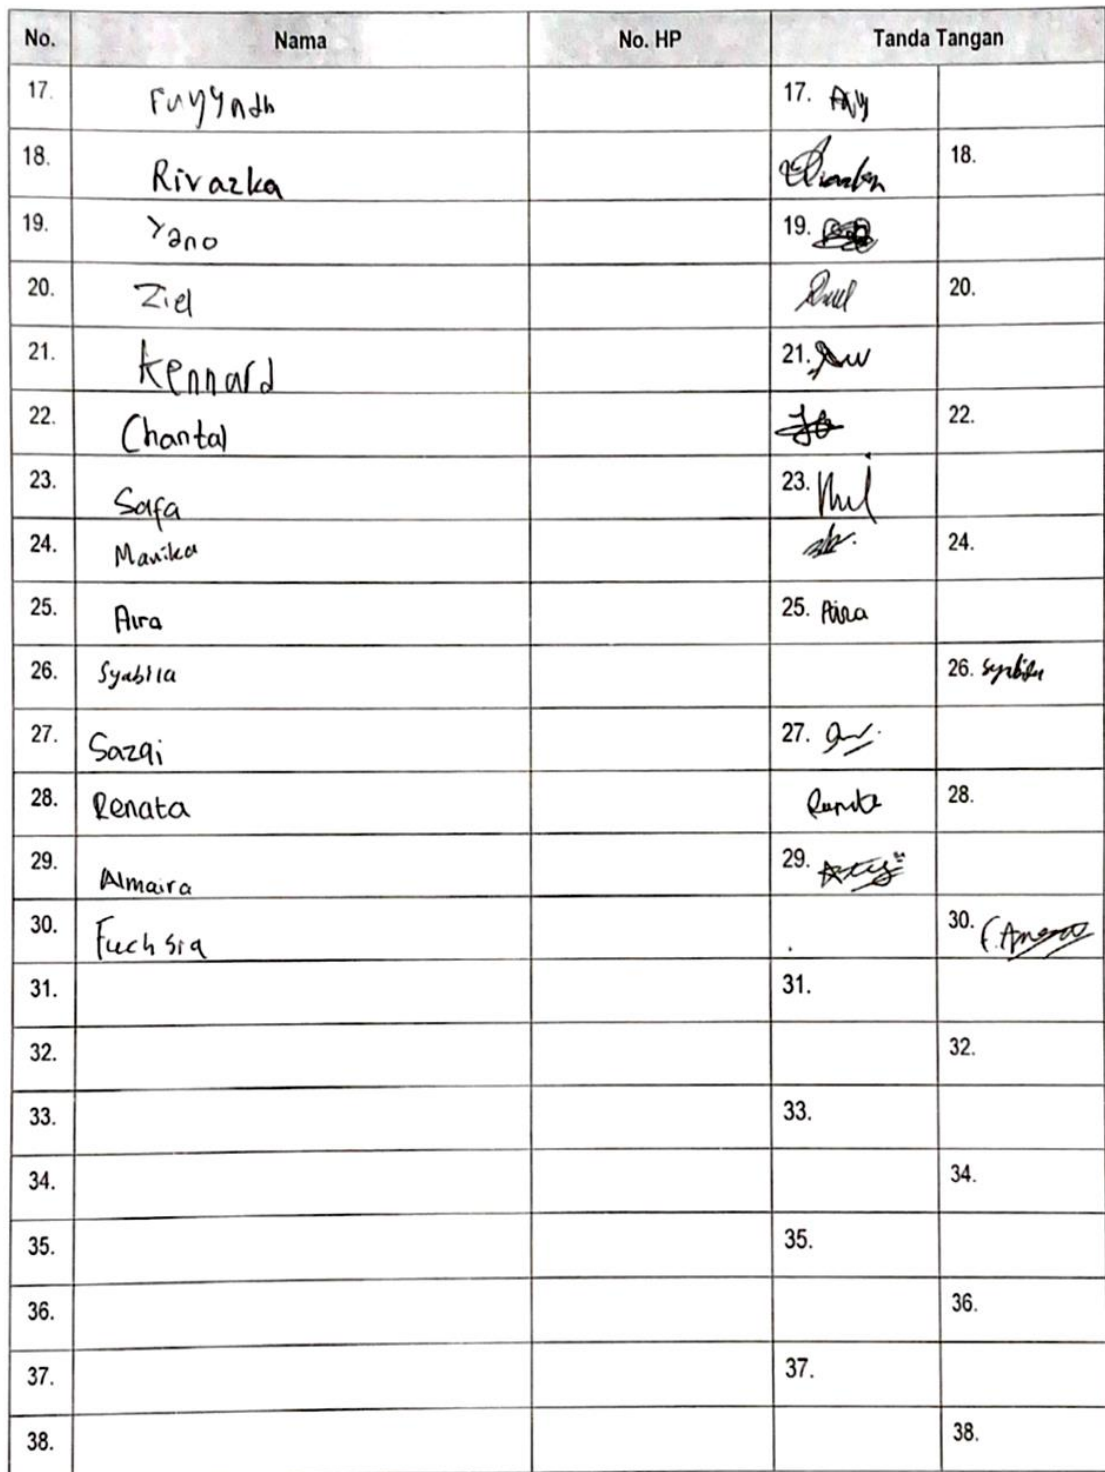 No. Nama No. HP Tanda Tangan
17. Fayyadh 17.
18. Rivazka 18.
19. Yano 19.
20. Ziel 20.
21. Kennard 21.
22. Chantal 22.
23. Safa 23.
24. Manika 24.
25. Aira 25. Aira
26. Syabila 26. Syabila
27. Sazqi 27.
28. Renata Renata 28.
29. Almaira 29.
30. Fuchsia 30.
31. 31.
32. 32.
33. 33.
34. 34.
35. 35.
36. 36.
37. 37.
38. 38.